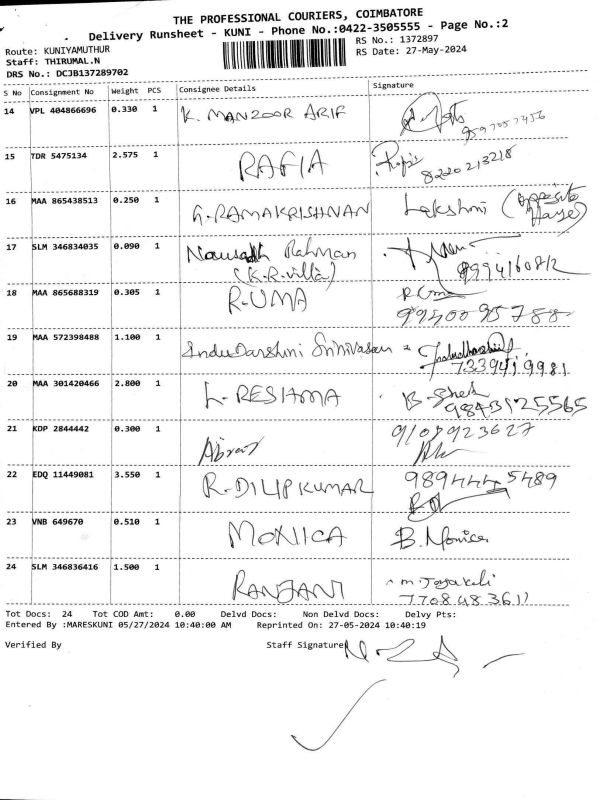 THE PROFESSIONAL COURIERS, COIMBATORE
Delivery Runsheet - KUNI - Phone No.:0422-3505555 - Page No.:2
Route: KUNIYAMUTHUR RS No.: 1372897
Staff: THIRUMAL.N RS Date: 27-May-2024
DRS No.: DCJB137289702
S No Consignment No Weight PCS Consignee Details Signature
14 VPL 404866696 0.330 1 K. MANZOOR ARIF
15 TDR 5475134 2.575 1 RAFIA 8220213218
16 MAA 865438513 0.250 1 G.RAMAKRISHNAN Lakshmi (opposite
17 SLM 346834035 0.090 1 Nausadh Rahman
(K.R.villa) 9994160812
18 MAA 865688319 0.305 1 R-UMA
99400 95788
19 MAA 572398488 1.100 1 InduDarshini Srinivasan
7339419981
20 MAA 301420466 2.800 1 L. RESHMA
9843125565
21 KDP 2844442 0.300 1 9109923627
22 EDQ 11449081 3.550 1 R.DILIPKUMAR 9894445489
23 VNB 649670 0.510 1 MONICA B.Monica
24 SLM 346836416 1.500 1 RANJANI
Tot Docs: 24 Tot COD Amt: 0.00 Delvd Docs: Non Delvd Docs: Delvy Pts:
Entered By :MARESKUNI 05/27/2024 10:40:00 AM Reprinted On: 27-05-2024 10:40:19
Verified By Staff Signature